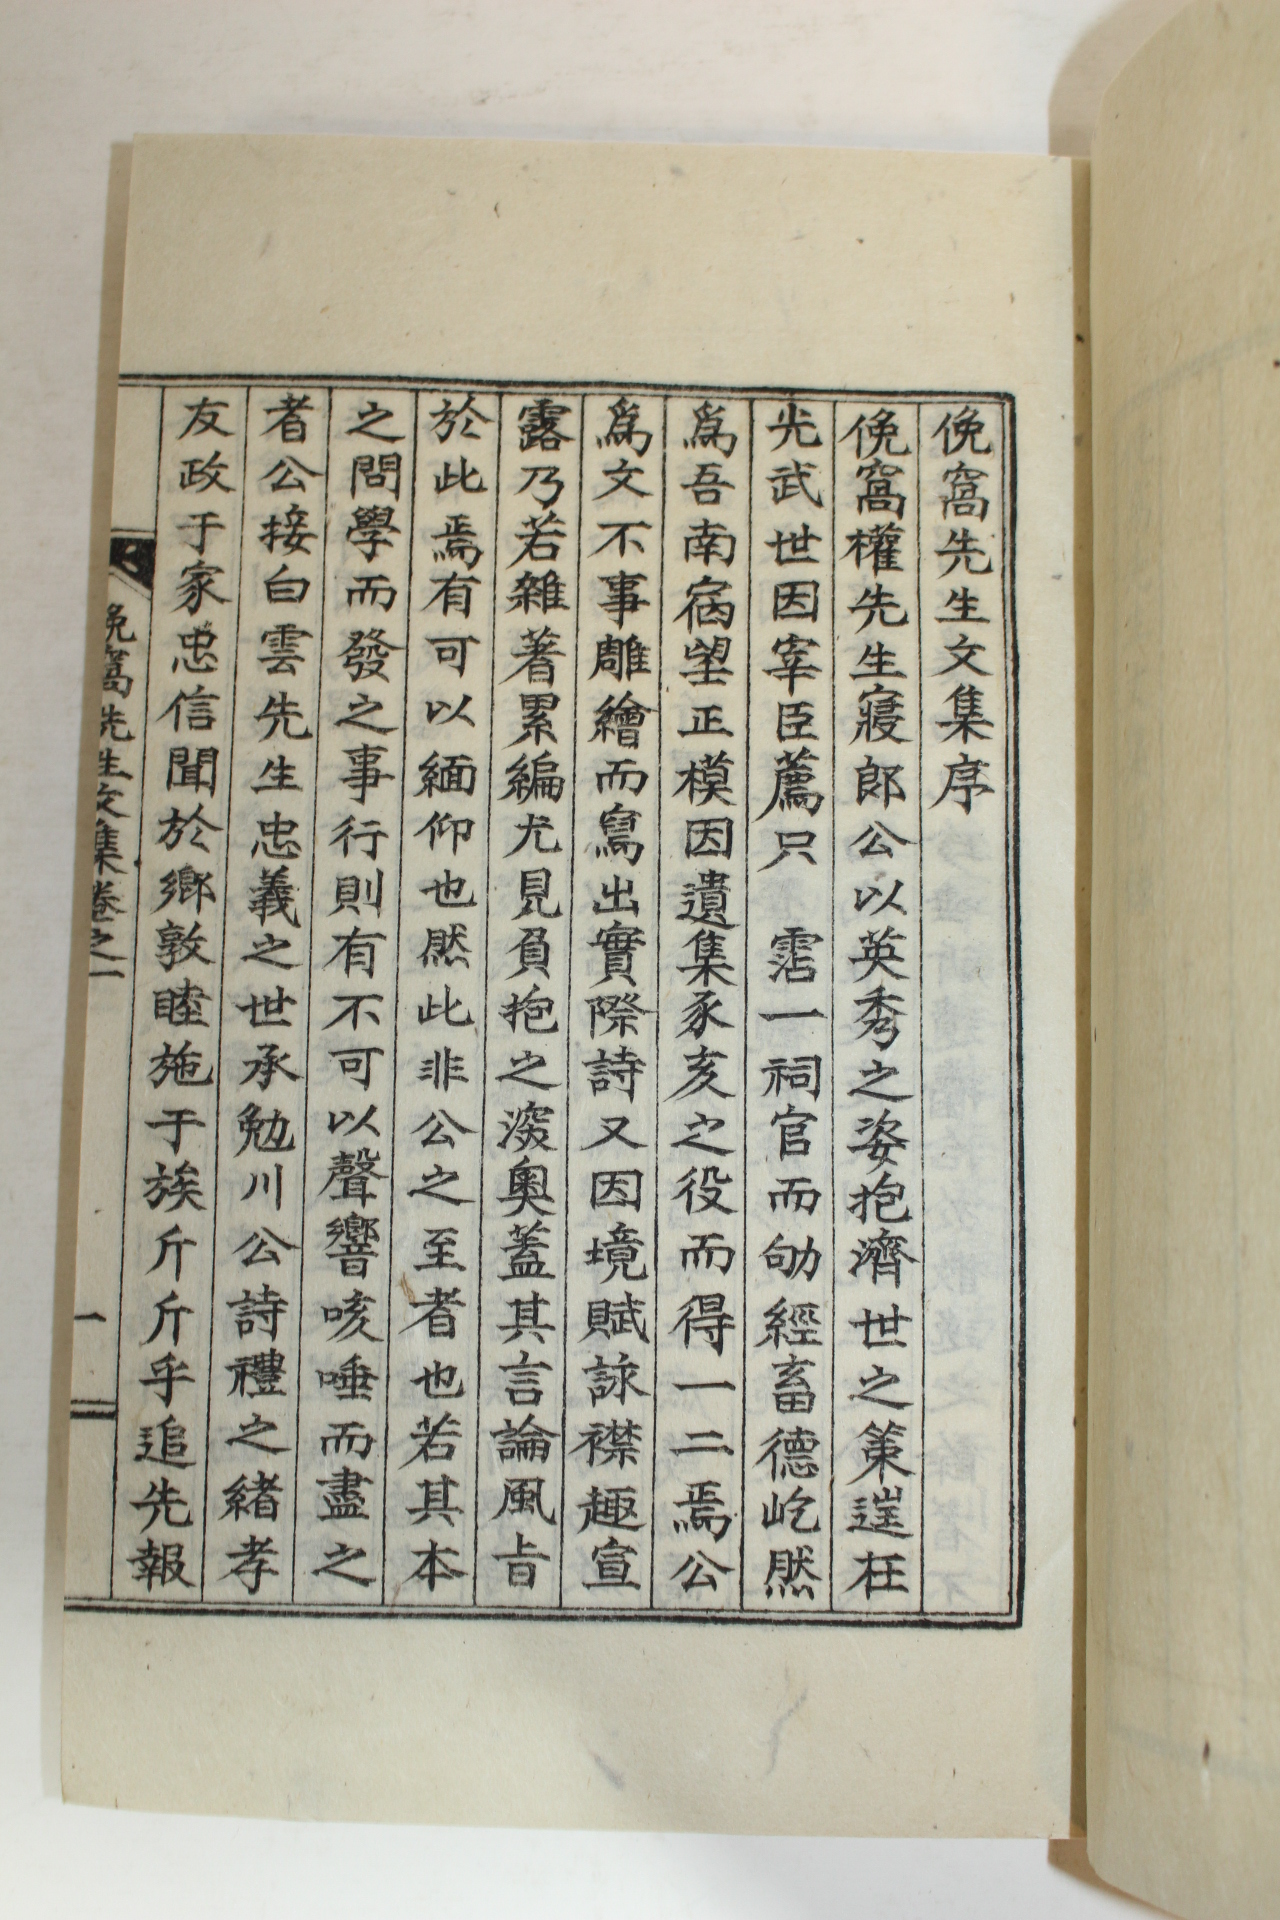 俛窩先生文集序
俛窩權先生寢郎公以英秀之姿抱濟世之策遑枉
光武世因宰臣薦只 霑一祠官而劬經畜德屹然
爲吾南宿望正模因遺集豕亥之役而得一二焉公
爲文不事雕繪而寫出實際詩又因境賦詠襟趣宣
露乃若雜著累編尤見負抱之深奧蓋其言論風旨
於此焉有可以緬仰也然此非公之至者也若其本
之問學而發之事行則有不可以聲響咳唾而盡之
者公接白雲先生忠義之世承勉川公詩禮之緖孝
友政于家忠信聞於鄉敦睦施于族斤斤乎追先報
俛窩先生文集卷之一
一